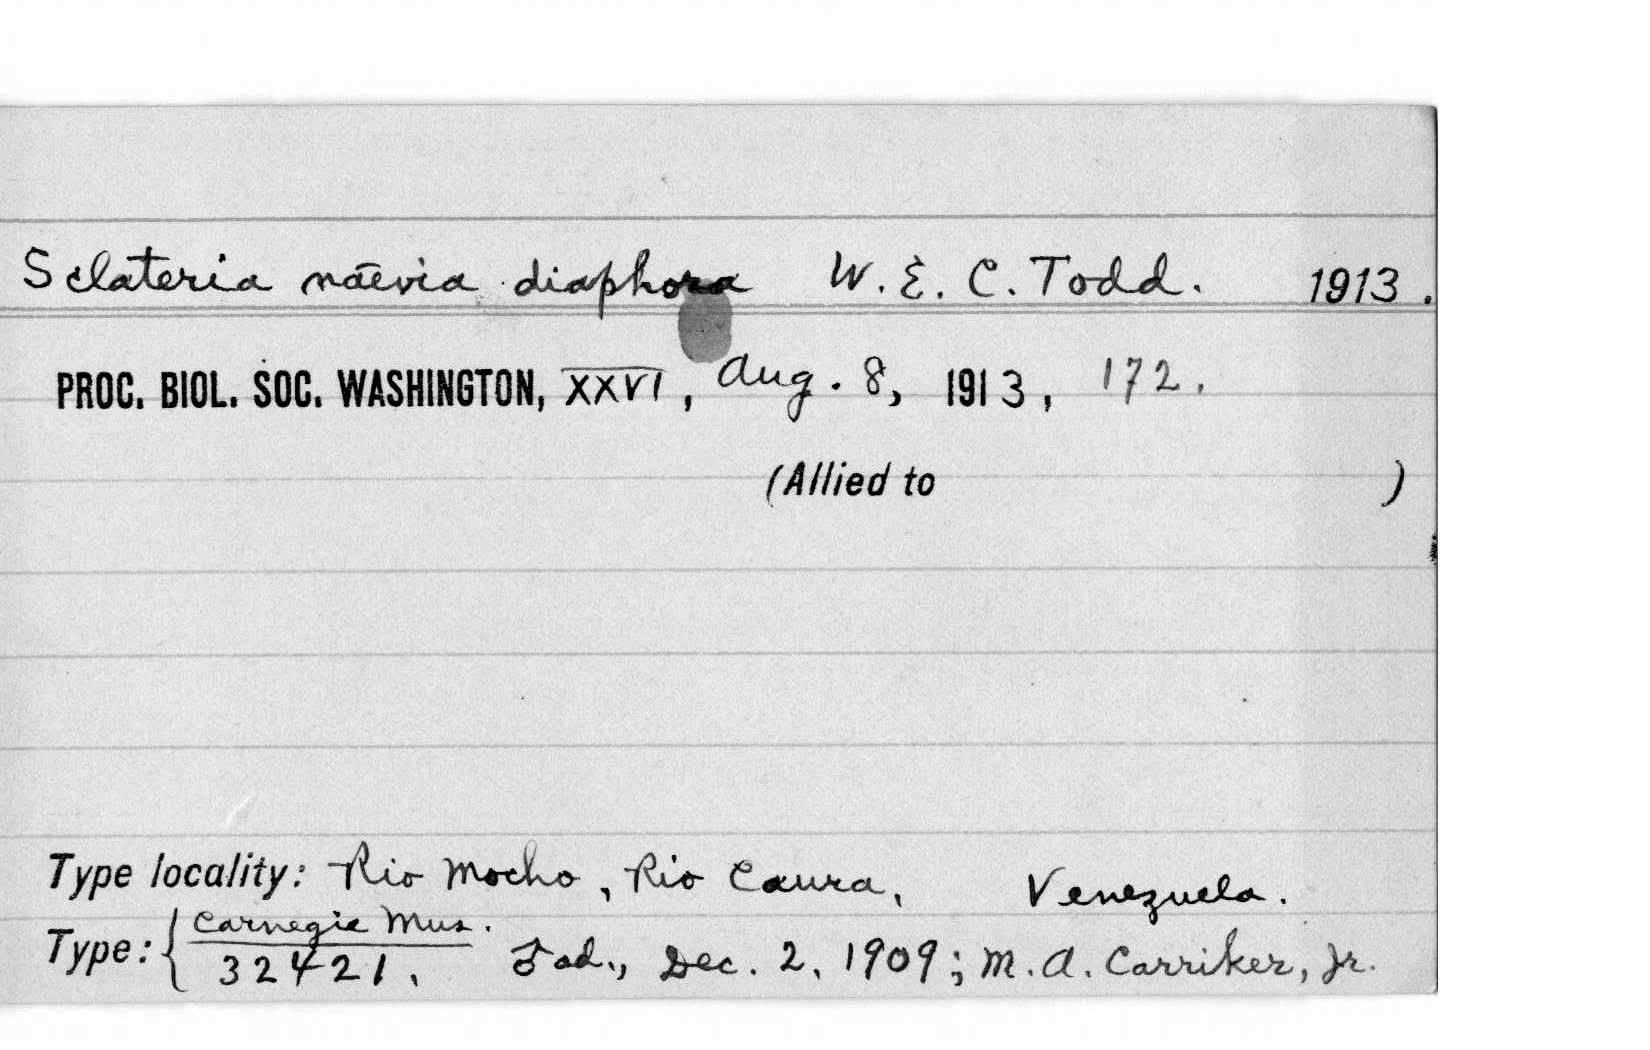 Sclateria naevia diaphora W. E. C. Todd. 1913.
PROC. BIOL. SOC. WASHINGTON, XXVI, Aug. 8, 1913, 172.
(Allied to )
Type locality: Rio Mocho, Rio Caura, Venezuela.
Type: { Carnegie Mus.
32421. ♂ ad., Dec. 2, 1909; M. A. Carriker, Jr.